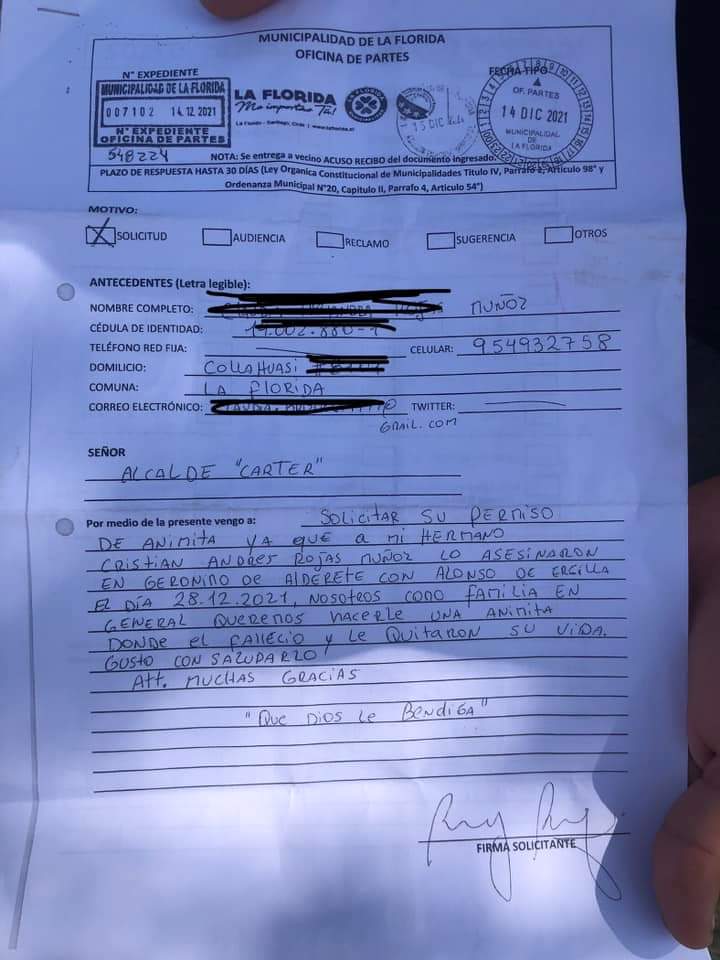 MUNICIPALIDAD DE LA FLORIDA
OFICINA DE PARTES
N° EXPEDIENTE
MUNICIPALIDAD DE LA FLORIDA
007102 14.12.2021
N° EXPEDIENTE
OFICINA DE PARTES
548224
LA FLORIDA
Me importas Tú!
La Florida - Santiago, Chile | www.laflorida.cl
15 DIC
FECHA TIPO
OF. PARTES
14 DIC 2021
MUNICIPALIDAD
DE
LA FLORIDA
NOTA: Se entrega a vecino ACUSO RECIBO del documento ingresado.
PLAZO DE RESPUESTA HASTA 30 DÍAS (Ley Organica Constitucional de Municipalidades Titulo IV, Parrafo 2, Artículo 98° y
Ordenanza Municipal N°20, Capitulo II, Parrafo 4, Articulo 54°)
MOTIVO:
X SOLICITUD AUDIENCIA RECLAMO SUGERENCIA OTROS
ANTECEDENTES (Letra legible):
NOMBRE COMPLETO: MUÑOZ
CÉDULA DE IDENTIDAD:
TELÉFONO RED FIJA: CELULAR: 954932758
DOMICILIO: COLLAHUASI
COMUNA: LA FLORIDA
CORREO ELECTRÓNICO: TWITTER:
GMAIL.COM
SEÑOR
ALCALDE "CARTER"
Por medio de la presente vengo a: SOLICITAR SU PERMISO
DE ANIMITA YA QUE A MI HERMANO
CRISTIAN ANDRES ROJAS MUÑOZ LO ASESINARON
EN GERONINO DE ALDERETE CON ALONSO DE ERCILLA
EL DÍA 28.12.2021, NOSOTROS COMO FAMILIA EN
GENERAL QUEREMOS HACERLE UNA ANIMITA
DONDE EL FALLECIO Y LE QUITARON SU VIDA.
GUSTO CON SALUDARLO
Att. MUCHAS GRACIAS
"QUE DIOS LE BENDIGA"
FIRMA SOLICITANTE